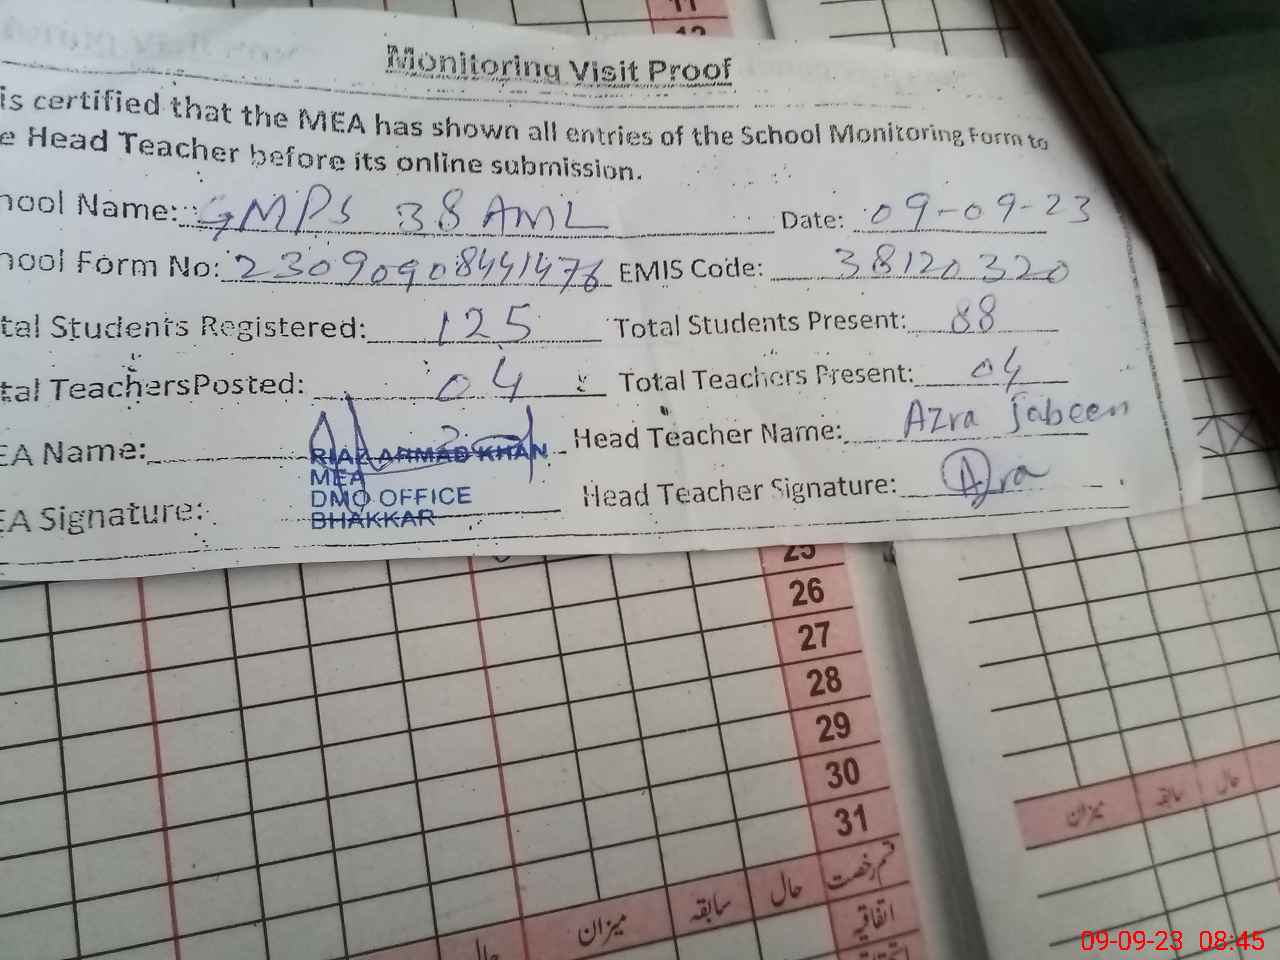 11
12
Monitoring Visit Proof
is certified that the MEA has shown all entries of the School Monitoring Form to
e Head Teacher before its online submission.
hool Name: GMPS 38 AML Date: 09-09-23
hool Form No: EMIS Code: 38120320
tal Students Registered: 125 Total Students Present: 88
tal TeachersPosted: 04 Total Teachers Present: 04
EA Name: Head Teacher Name: Azra Jabeen
RIAZ AHMAD KHAN
MEA
DMO OFFICE
BHAKKAR
EA Signature: Head Teacher Signature: Azra
25
26
27
28
29
30
31
قسم رخصت حال سابقہ میزان حال
اتفاقیہ
حال سابقہ میزان
09-09-23 08:45